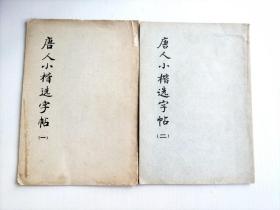 唐人小楷选字帖
(一)
唐人小楷选字帖
(二)